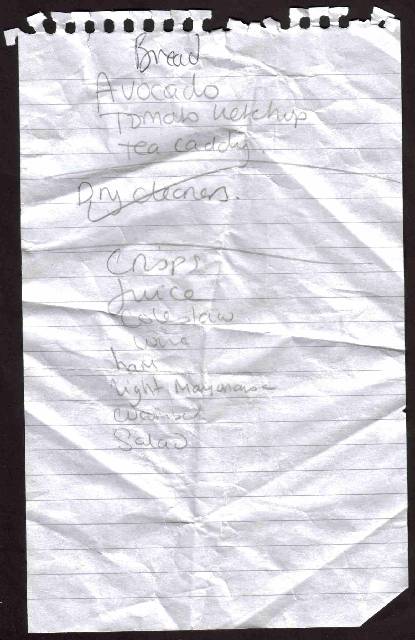 Bread
Avocado
Tomato ketchup
Tea caddy.
Dry cleaners.
Crisps
Juice
Coleslaw
wine
ham
light Mayonaise
Salad